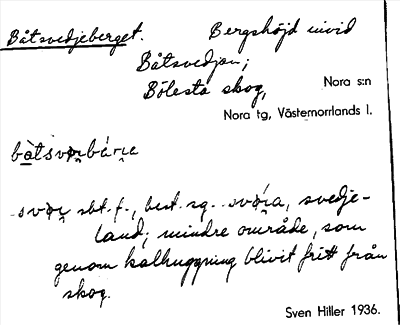 Båtsvedjeberget. Bergshöjd invid
Båtsvedjan;
Bölesta skog,
Nora s:n
Nora tg, Västernorrlands l.
sbt. f., best. sg. svedje-
land; mindre område, som
genom kalhuggning blivit fritt från
skog.
Sven Hiller 1936.